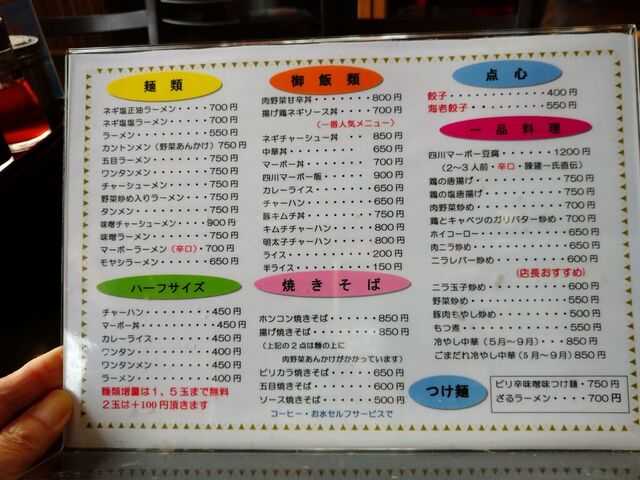 麺類
ネギ塩正油ラーメン・・・・700円
ネギ塩塩ラーメン・・・・・700円
ラーメン・・・・・・・・・550円
カントンメン（野菜あんかけ）750円
五目ラーメン・・・・・・・750円
ワンタンメン・・・・・・・750円
チャーシューメン・・・・・750円
野菜炒め入りラーメン・・・750円
タンメン・・・・・・・・・750円
味噌チャーシューメン・・・900円
味噌ラーメン・・・・・・・750円
マーボーラーメン（辛口）・700円
モヤシラーメン・・・・・・650円
ハーフサイズ
チャーハン・・・・・・・450円
マーボー丼・・・・・・・450円
カレーライス・・・・・・450円
ワンタン・・・・・・・・400円
ワンタンメン・・・・・・450円
ラーメン・・・・・・・・400円
麺類増量は１、５玉まで無料
２玉は＋100円頂きます
御飯類
肉野菜甘辛丼・・・・・・800円
揚げ鶏ネギソース丼・・・700円
（一番人気メニュー）
ネギチャーシュー丼・・・850円
中華丼・・・・・・・・・650円
マーボー丼・・・・・・・700円
四川マーボー飯・・・・・900円
カレーライス・・・・・・650円
チャーハン・・・・・・・650円
豚キムチ丼・・・・・・・750円
キムチチャーハン・・・・800円
明太子チャーハン・・・・800円
ライス・・・・・・・・・200円
半ライス・・・・・・・・150円
焼きそば
ホンコン焼きそば・・・・・850円
揚げ焼きそば・・・・・・・850円
（上記の２点は麺の上に
肉野菜あんかけがかかっています）
ピリカラ焼きそば・・・・650円
五目焼きそば・・・・・・600円
ソース焼きそば・・・・・500円
コーヒー・お水セルフサービスで
点心
餃子・・・・・・・・・・400円
海老餃子・・・・・・・・550円
一品料理
四川マーボー豆腐・・・・・1200円
（２～３人前・辛口・陳建一氏直伝）
鶏の唐揚げ・・・・・・・・750円
鶏の塩唐揚げ・・・・・・・750円
肉野菜炒め・・・・・・・・700円
鶏とキャベツのガリバター炒め・700円
ホイコーロー・・・・・・・650円
肉ニラ炒め・・・・・・・・650円
ニラレバー炒め・・・・・・600円
（店長おすすめ）
ニラ玉子炒め・・・・・・・600円
野菜炒め・・・・・・・・・550円
豚肉もやし炒め・・・・・・500円
もつ煮・・・・・・・・・・550円
冷やし中華（５月～９月）・・850円
ごまだれ冷やし中華（５月～９月）850円
つけ麺
ピリ辛味噌味つけ麺・750円
ざるラーメン・・・・700円